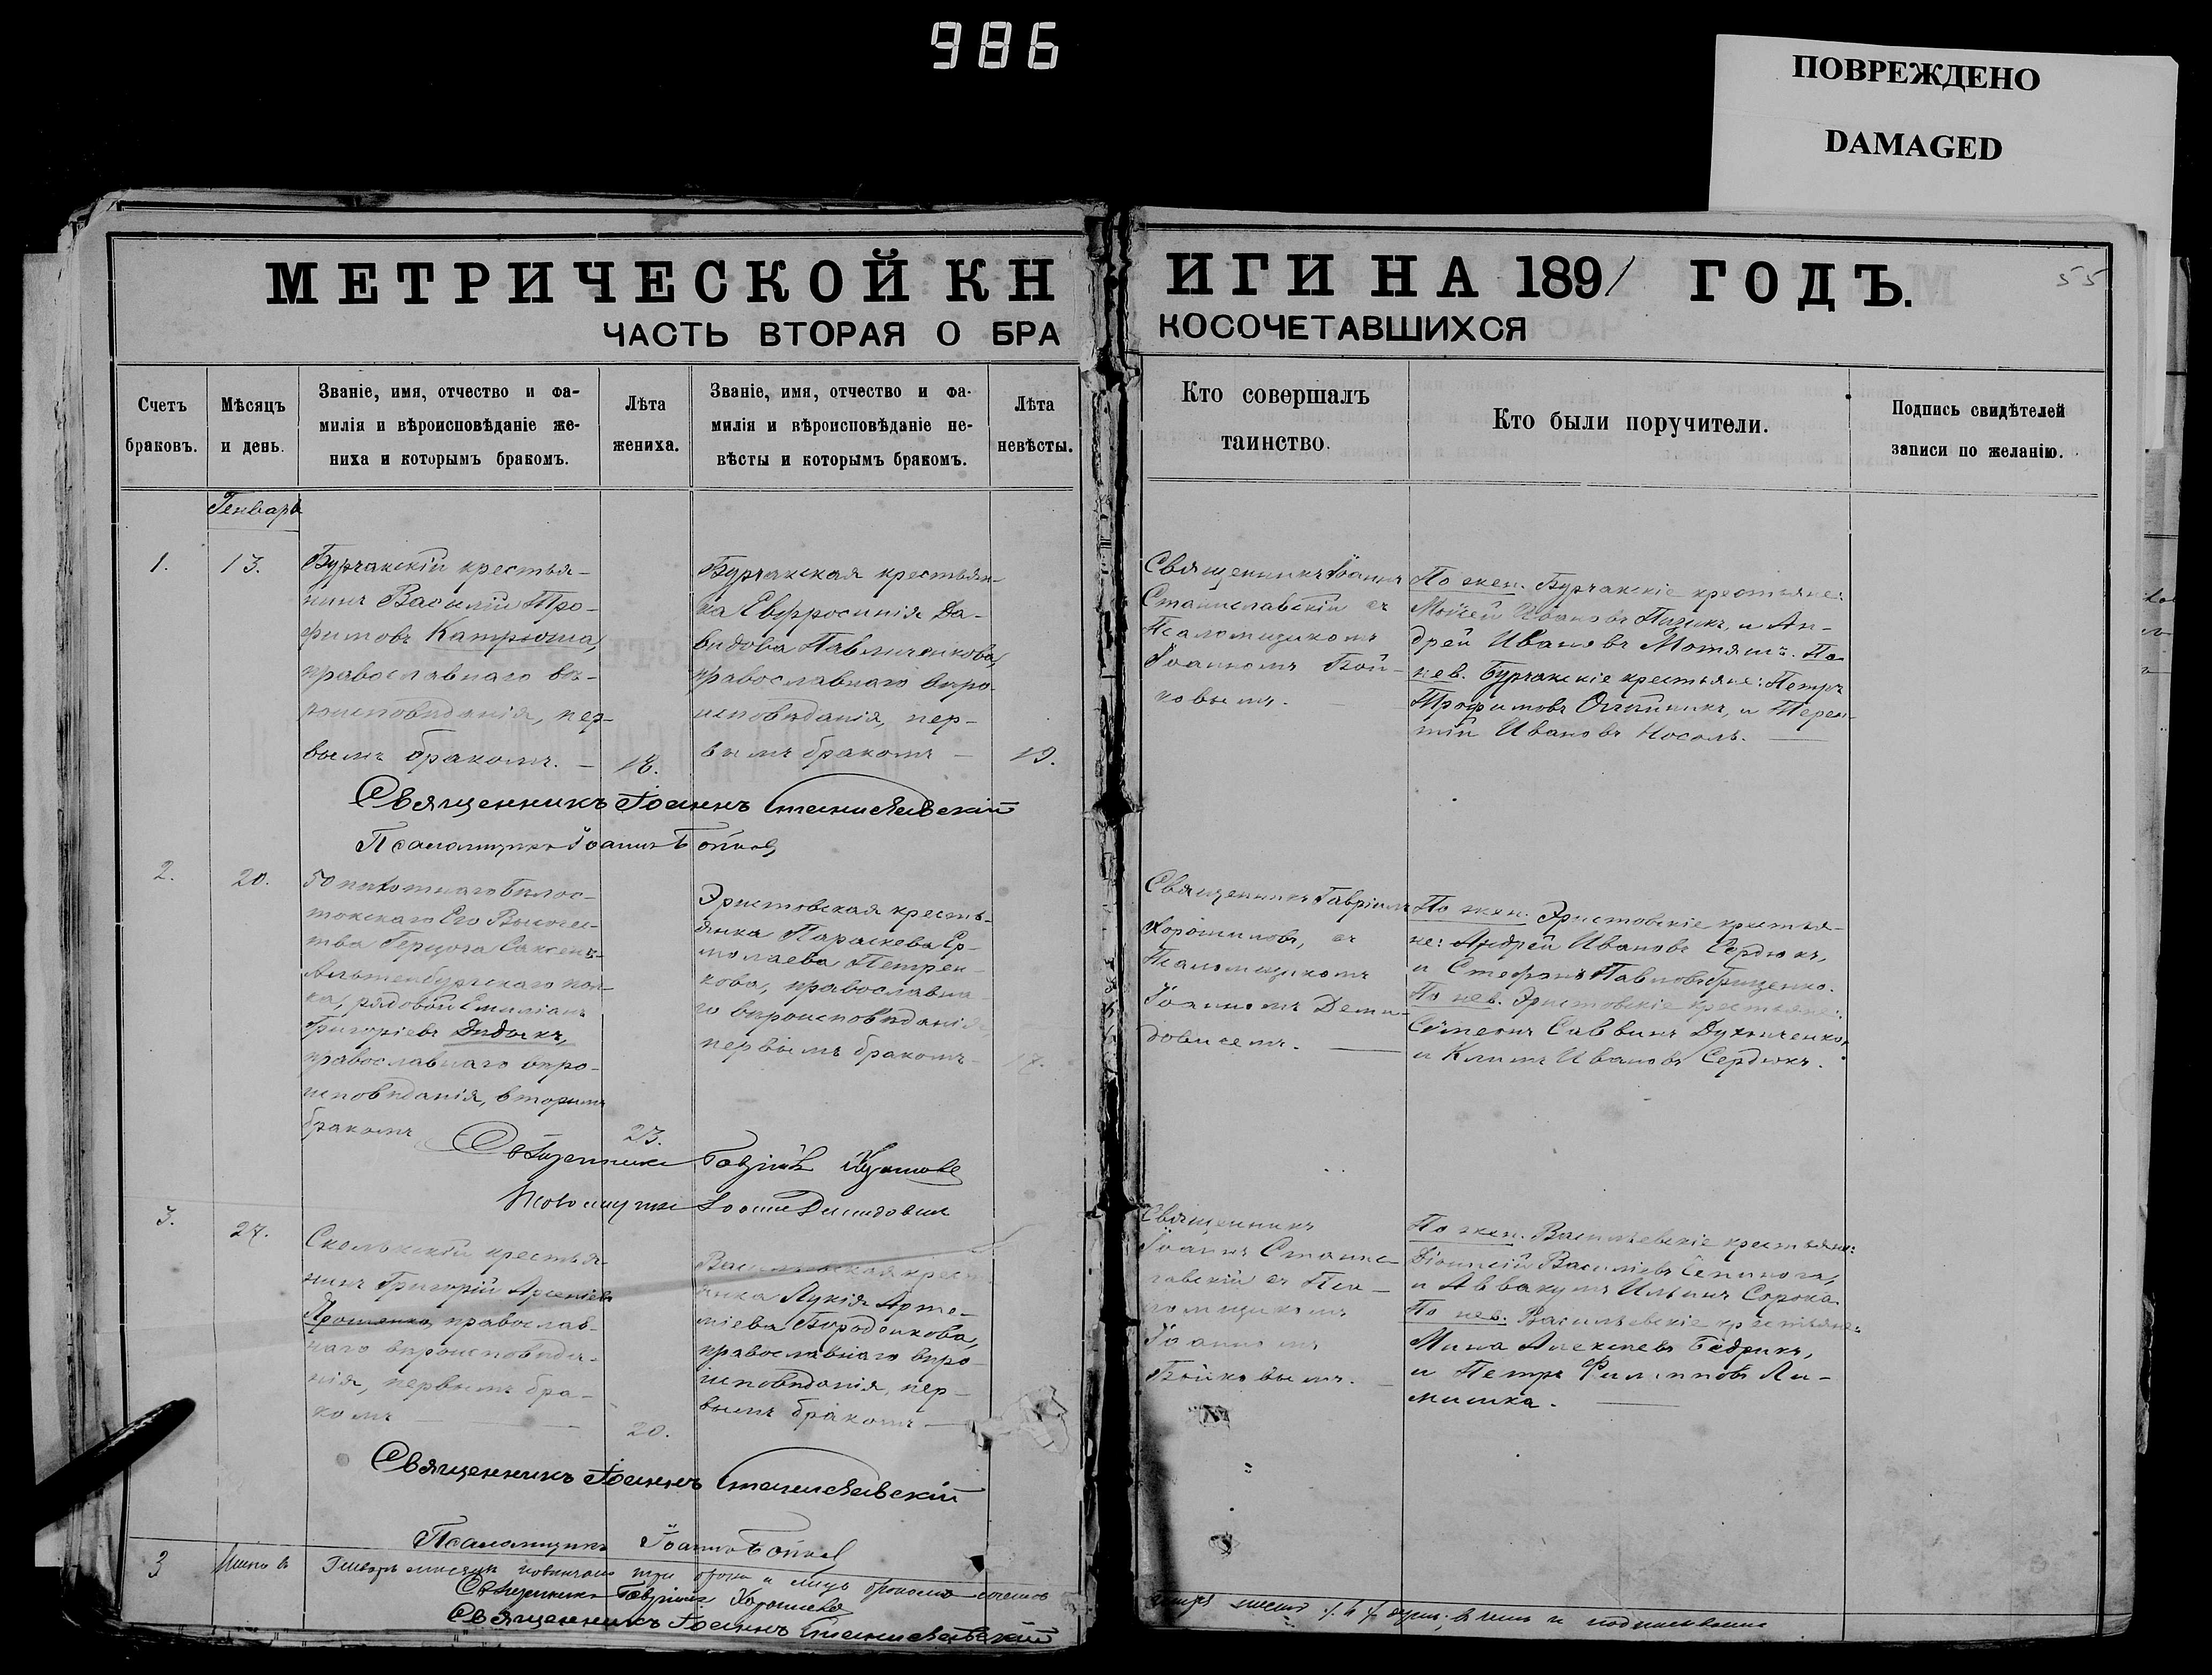 986
ПОВРЕЖДЕНО
DAMAGED
МЕТРИЧЕСКОЙ КН
ИГИ НА 1891 ГОДЪ.
55
ЧАСТЬ ВТОРАЯ О БРА
КОСОЧЕТАВШИХСЯ
Счетъ
браковъ.
Мѣсяцъ
и день.
Званіе, имя, отчество и фа-
милія и вѣроисповѣданіе же-
ниха и которымъ бракомъ.
Лѣта
жениха.
Званіе, имя, отчество и фа-
милія и вѣроисповѣданіе не-
вѣсты и которымъ бракомъ.
Лѣта
невѣсты.
Кто совершалъ
таинство.
Кто были поручители.
Подпись свидѣтелей
записи по желанію.
Генварь
1.
13.
Бурчакскій крестья-
нинъ Василій Тро-
фимовъ Катрюша,
православнаго вѣ-
роисповѣданія, пер-
вымъ бракомъ. —
18.
Бурчакская крестьян-
ка Евфросинія Да-
видова Павличенкова,
православнаго вѣро-
исповѣданія, пер-
вымъ бракомъ —
19.
Священникъ Іоаннъ
Станиславскій съ
Псаломщикомъ
Іоанномъ Бой-
ковымъ.
По жен. Бурчакскіе крестьяне:
Моисей Ивановъ и Ан-
дрей Ивановъ Мотяшъ. По
нев. Бурчакскіе крестьяне: Петръ
Трофимовъ Олейникъ, и Терен-
тій Ивановъ Носаль.
Священникъ Іоаннъ Станиславскій
Псаломщикъ Іоаннъ Бойковъ
2.
20.
50 пѣхотнаго Бѣлос-
токскаго Его Высочес-
тва Герцога Саксенъ-
Альтенбургскаго пол-
ка, рядовой Емиліанъ
Григоріевъ Дидыкъ,
православнаго вѣро-
исповѣданія, вторымъ
бракомъ
23.
Эристовская кресть-
янка Параскева Ер-
молаева Петрен-
кова, православна-
го вѣроисповѣданія
первымъ бракомъ
Священникъ Гавріилъ
Хорошиловъ, съ
Псаломщикомъ
Іоанномъ Деми-
довичемъ.
По жен. Эристовскіе крестья-
не: Андрей Ивановъ Сердюкъ,
и Стефанъ Павловъ Гриценко.
По нев. Эристовскіе крестьяне:
Сѵмеонъ Саввинъ
и Климъ Ивановъ Сердюкъ.
Священникъ Гавріилъ
Псаломщикъ Іоаннъ Демидовичъ
3.
27.
Скельскій крестья-
нинъ Григорій Арсеніевъ
Ярошенко, православ-
наго вѣроисповѣда-
нія, первымъ бра-
комъ
20.
Васильевская крест
янка Лукія Арте-
міева Бороденкова,
православнаго вѣро-
исповѣданія, пер-
вымъ бракомъ —
Священникъ
Іоаннъ Станис-
лавскій съ Пса-
ломщикомъ
Іоанномъ
Бойковымъ.
По жен. Васильевскіе крестьяне:
Діонисій Василіевъ
и Аввакумъ Ильинъ Сорока.
По нев. Васильевскіе крестьяне:
Мина Алексеевъ
и Петръ Филипповъ Ли-
Священникъ Іоаннъ Станиславскій
Псаломщикъ Іоаннъ Бойковъ
3
Итого въ Генварѣ мѣсяцѣ повѣнчано три
Священникъ Гавріилъ
Священникъ Іоаннъ Станиславскій